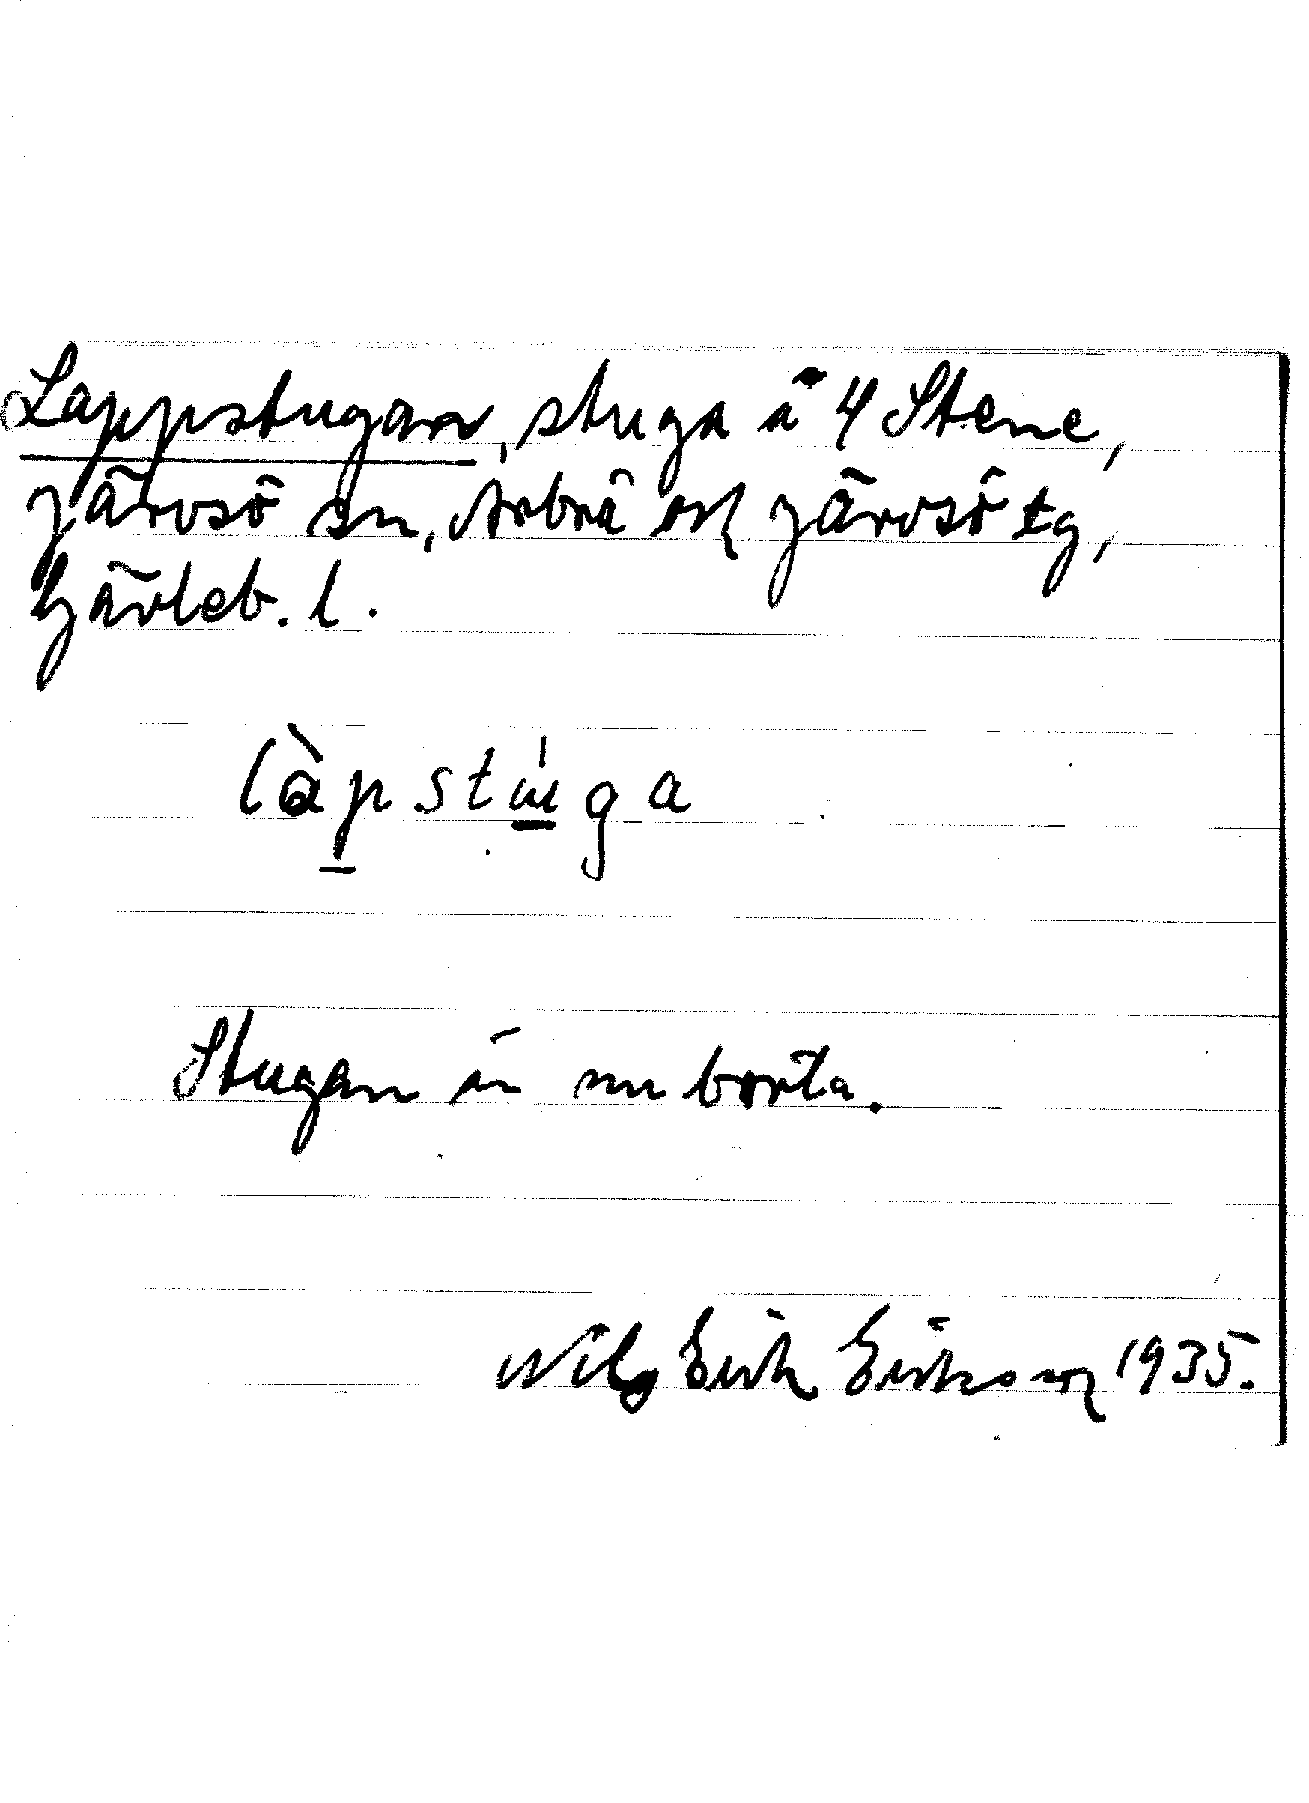 Lappstugan, stuga å 4 Stene,
Järvsö sn, Arbrå och Järvsö tg,
Gävleb. l.
làpstúga
Stugan är nu borta.
Nils Erik Eriksson 1935.